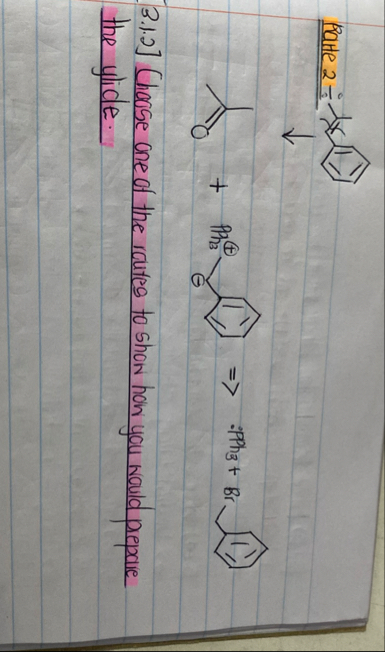 Route 2:
O + PPh3 ⊕ ⊖ => :PPh3 + Br
3.1.2] Choose one of the routes to show how you would prepare
the ylide.